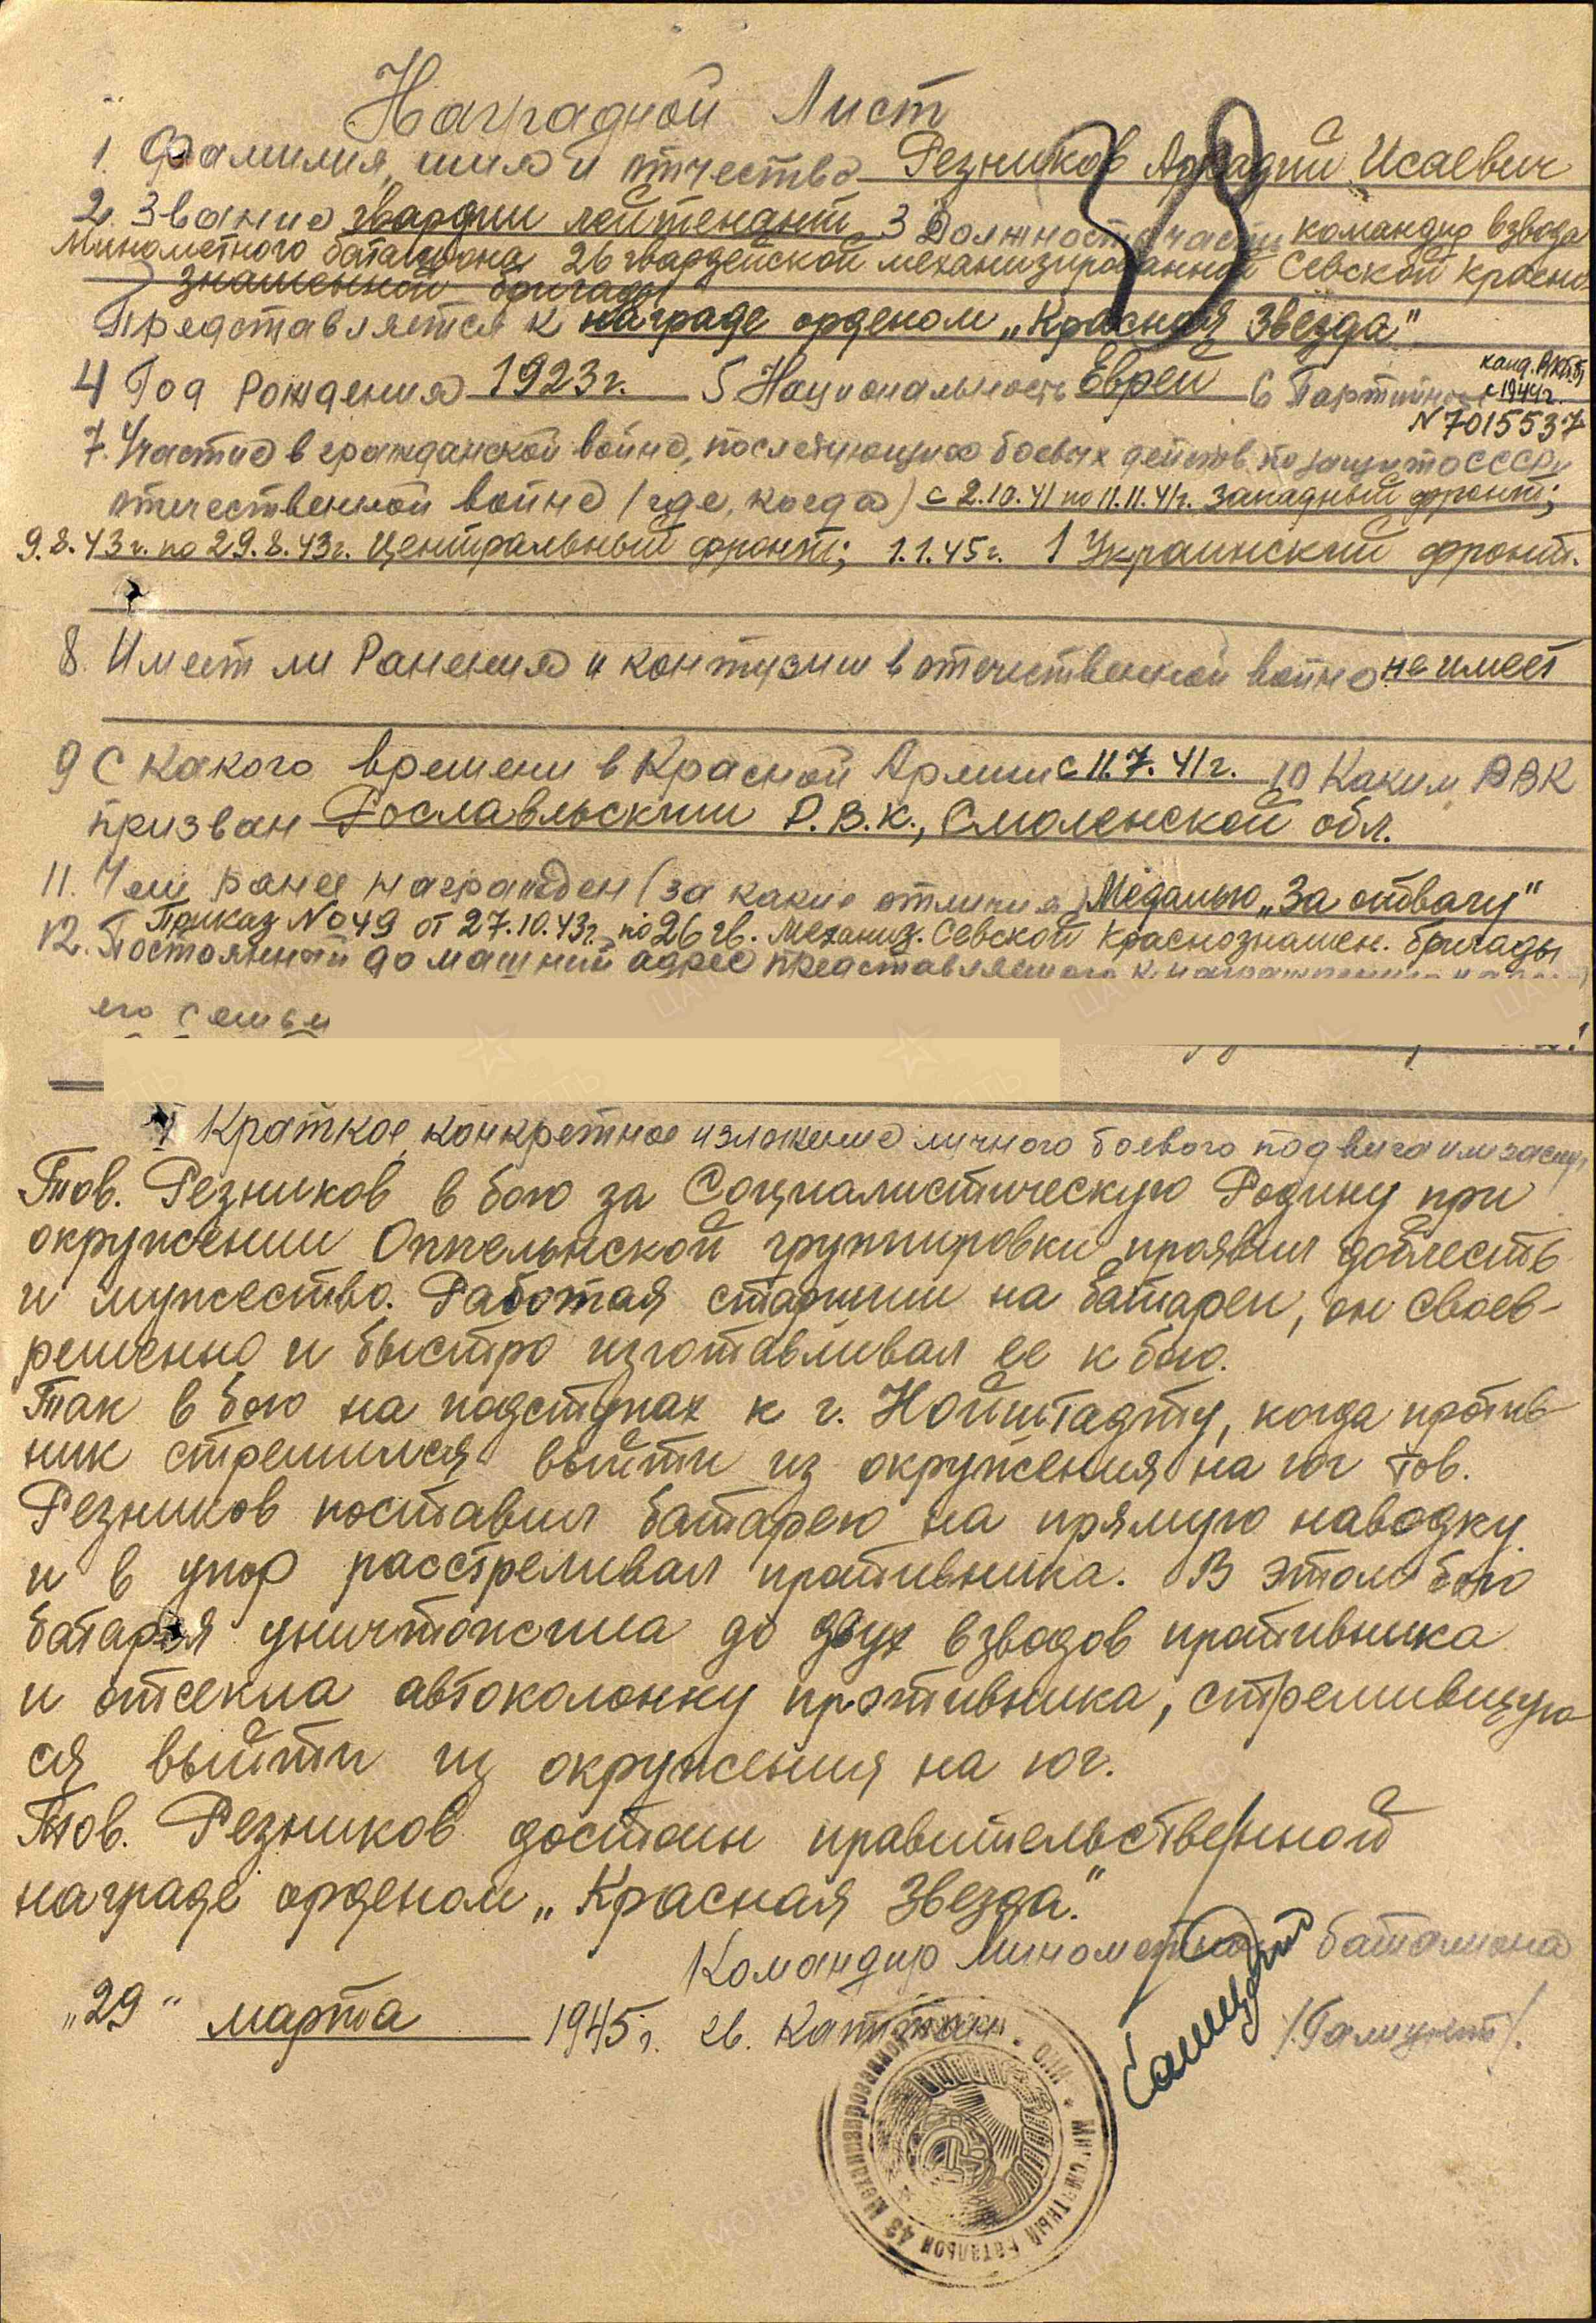 Наградной Лист
1. Фамилия, имя и отчество Резников Аркадий Исаевич
2. Звание гвардии лейтенант 3 Должность, часть командир взвода
Минометного баталиона 26 гвардейской механизированной Севской красно
знаменной бригады
Представляется к награде орденом „Красная Звезда"
4 Год Рождения 1923 г. 5 Национальность Еврей 6 Партийность канд. ВКП(б)
с 1944 г.
N 7015537
7. Участие в гражданской войне, последующих боевых действ. по защите СССР и
отечественной войне (где, когда) с 2.10.41 по 11.11.41г. Западный фронт;
9.8.43 г. по 29.8.43 г. Центральный фронт; 1.1.45 г. 1 Украинский фронт.
8. Имеет ли Ранения и контузии в отечественной войне не имеет
9 С какого времени в Красной Армии с 11.7.41 г. 10 Каким РВК
призван Рославльским Р.В.К., Смоленской обл.
11. Чем ранее награжден (за какие отличия) Медалью „За отвагу"
Приказ No 49 от 27.10.43г. по 26 гв. Механиз. Севской Краснознамен. бригады
12. Постоянный домашний адрес представляемого к награждению и адрес
его семьи
Краткое, конкретное изложение личного боевого подвига или заслуг
Тов. Резников в бою за Социалистическую Родину при
окружении Оппельнской группировки проявил доблесть
и мужество. Работая старшим на батареи, он своев-
ременно и быстро изготавливал ее к бою.
Так в бою на подступах к г. Нойштадту, когда против-
ник стремился выйти из окружения на юг тов.
Резников поставил батарею на прямую наводку
и в упор расстреливал противника. В этом бою
батарея уничтожила до двух взводов противника
и отсекла автоколонну противника, стремившую
ся выйти из окружения на юг.
Тов. Резников достоин правительственной
награде орденом „Красная Звезда."
Командир Минометного баталиона
„29" марта 1945 г. гв. Капитан /Галицкий/.
Минометный Батальон 43 Механизированной
НКО